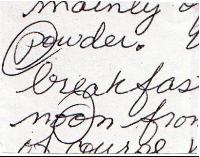 mainly
powder.
breakfas
noon from
of course